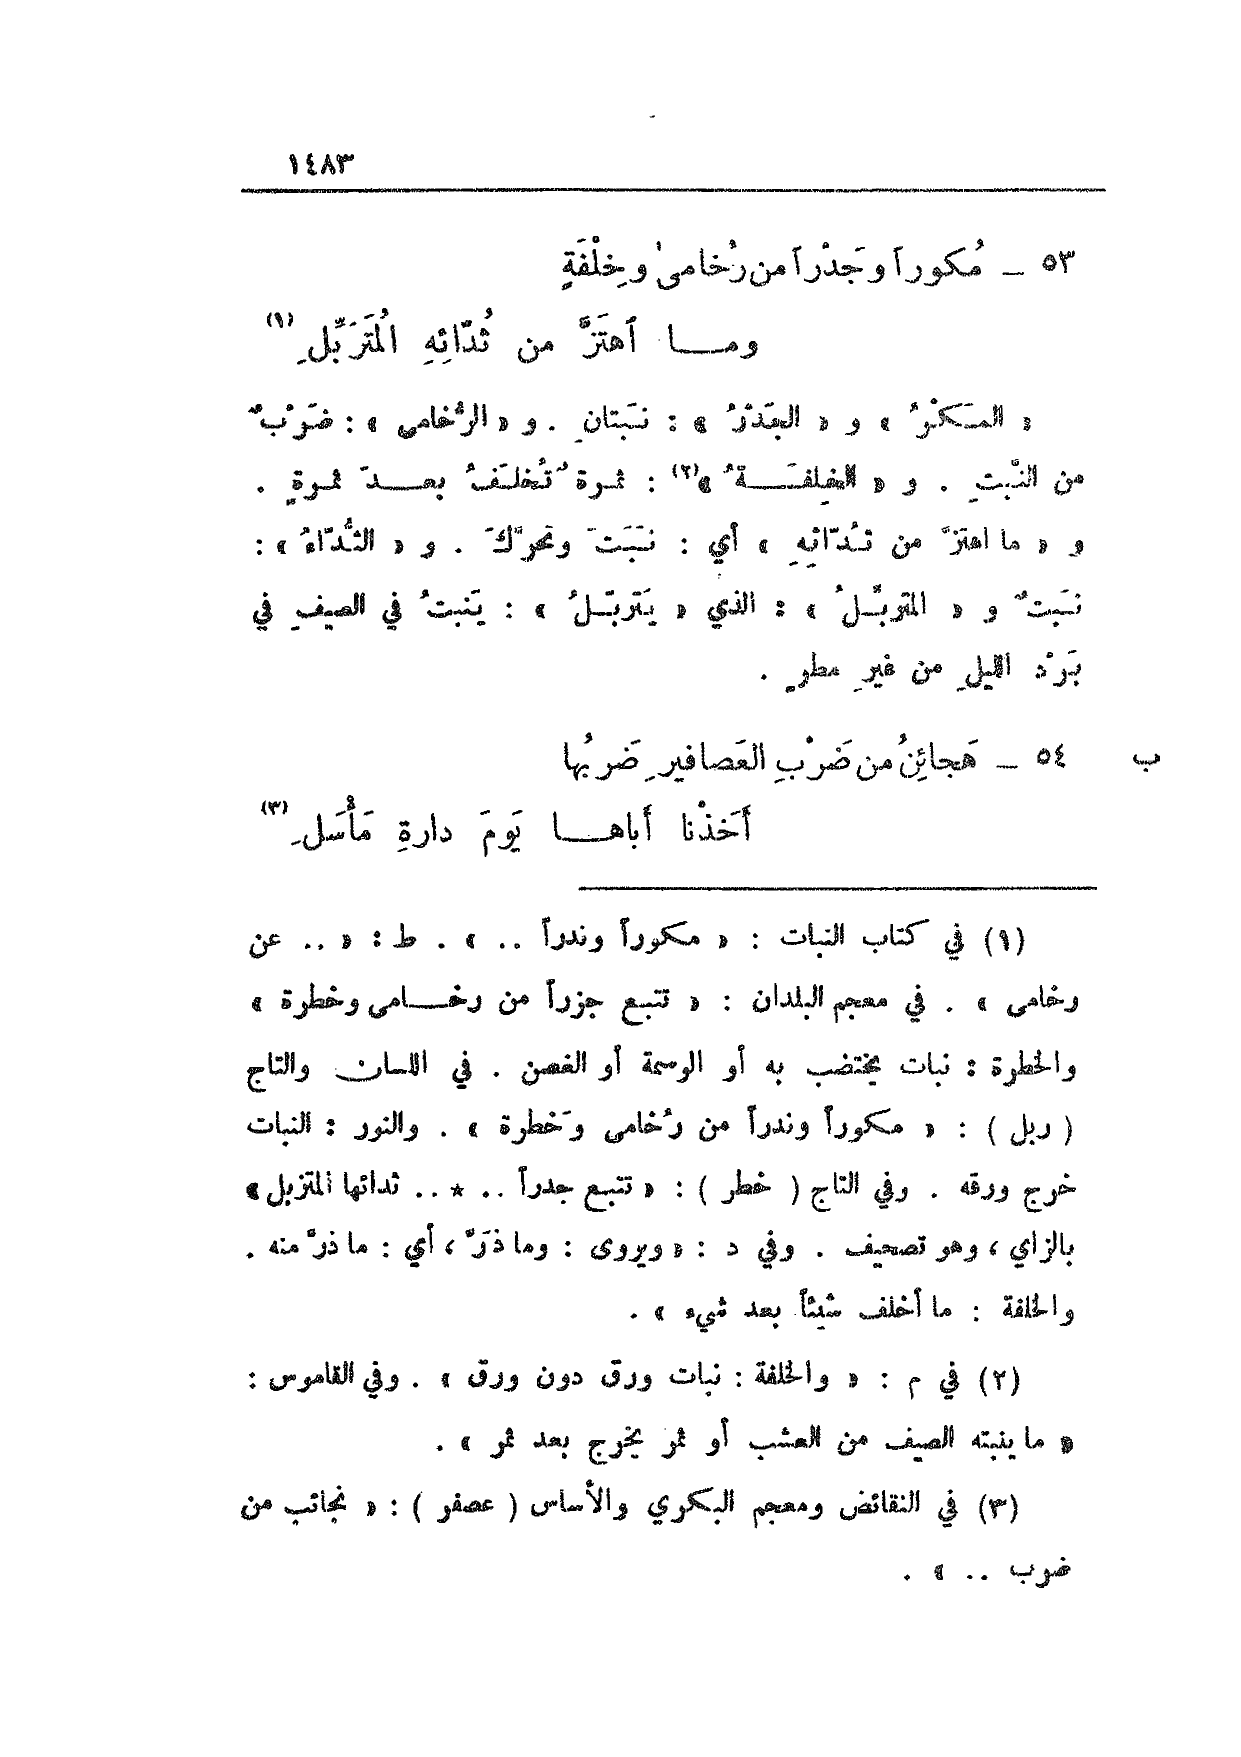 ١٤٨٣
٥٣ ــ مُكوراً وجَدْراً من رُخامىٰ وخِلْفَةٍ
ومــا اَهتَزَّ من ثُدّائِهِ المُتَرَبِّلِ (١)
« المَكْرُ » و « الجَدْرُ » : نَبَتانِ . و « الرُّخامى » : ضَرْبٌ
من النَّبتِ . و « الخِلفَــةُ »(٢) : ثمرةٌ تُخلَفُ بعــدَ ثمرةٍ .
و « ما اهتزَّ من ثُدّائِهِ » أي : نَبَتَ وتحرَّكَ . و « الثُّدّاءُ » :
نَبَتٌ و « المتربِّلُ » : الذي « يَتَربّلُ » : يَنبتُ في الصيفِ في
بَرْد الليلِ من غيرِ مطرٍ .
ب ٥٤ ــ هَجائِنُ من ضَرْبِ العَصافيرِ ضَربُها
أَخَذْنا أَباهــا يَومَ دارةِ مَأْسَلِ (٣)
(١) في كتاب النبات : « مكوراً وندراً .. » . ط : « .. عن
رخامى » . في معجم البلدان : « تتبع جزراً من رخــامى وخطرة »
والخطرة : نبات يختضب به أو الوسمة أو الغصن . في اللسان والتاج
( ربل ) : « مكوراً وندراً من رُخامى وَخطرة » . والنور : النبات
خرج ورقه . وفي التاج ( خطر ) : « تتبع جدراً .. * .. ثدائها المتزبل »
بالزاي ، وهو تصحيف . وفي د : « ويروى : وما ذَرَّ ، أي : ما ذرّ منه .
والخلفة : ما أخلف شيئاً بعد شيء » .
(٢) في م : « والخلفة : نبات ورق دون ورق » . وفي القاموس :
« ما ينبته الصيف من العشب أو ثمر يخرج بعد ثمر » .
(٣) في النقائض ومعجم البكري والأساس ( عصفر ) : « نجائب من
ضرب .. » .